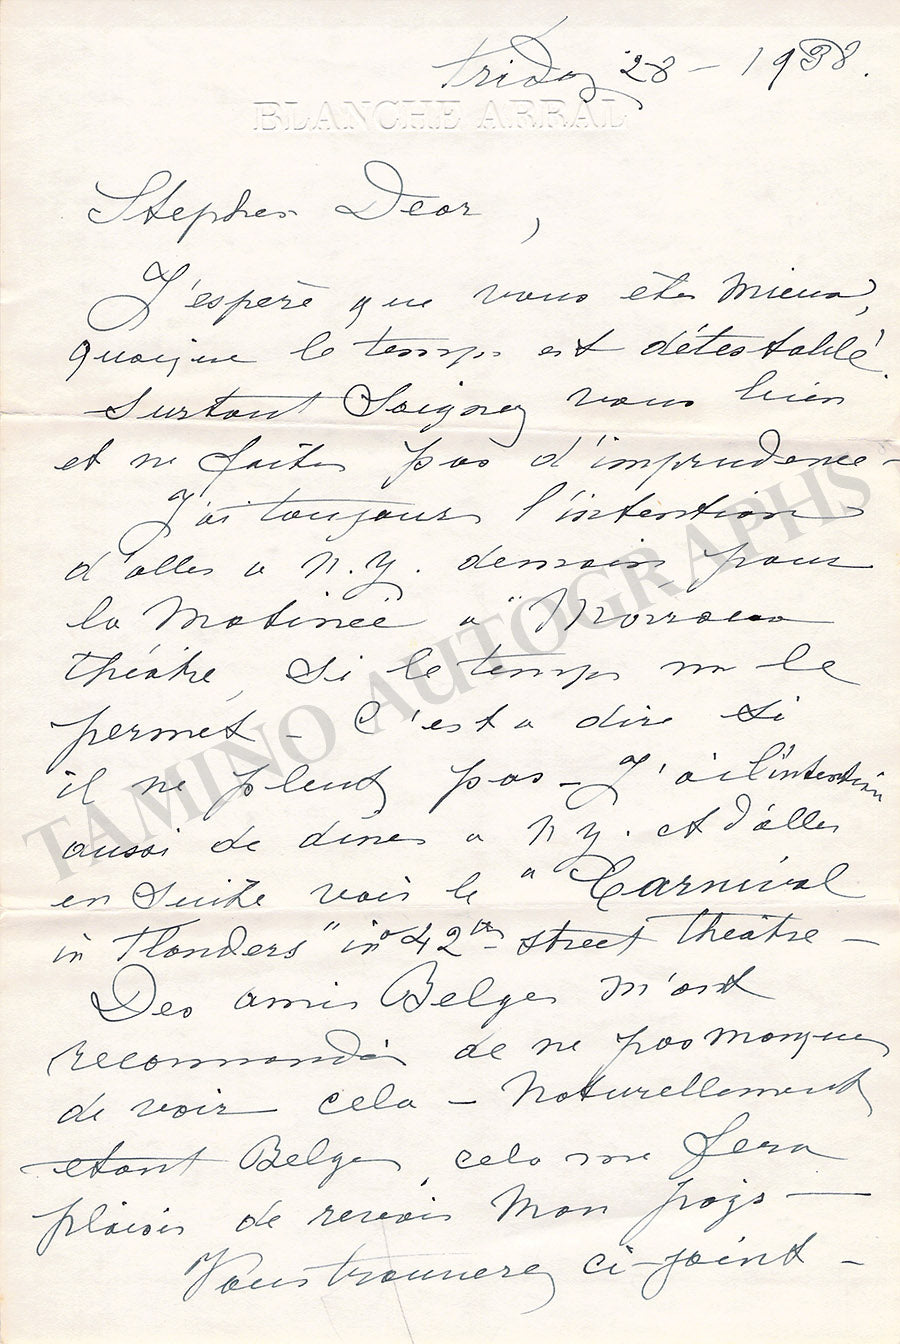 Friday 28 - 1938.
BLANCHE ARRAL
Stephen Dear,
J'espère que vous êtes mieux,
quoique le temps est détestable.
Surtout Soignez vous bien
et ne faites pas d'imprudence -
J'ai toujours l'intention
d'aller a N.Y. demain pour
la Matinée a "
théâtre, Si le temps me le
permet - C'est a dire si
il ne pleut pas - J'ai l'intention
aussi de diner a N.Y. et d'aller
en suite voir le " Carnival
in Flanders" in 42 street théatre -
Des amis Belges m'ont
recommandé de ne pas manquer
de voir cela - Naturellement
etant Belge cela me fera
plaisir de revoir Mon pays -
Vous trouverez ci-joint -
TAMINO AUTOGRAPHS